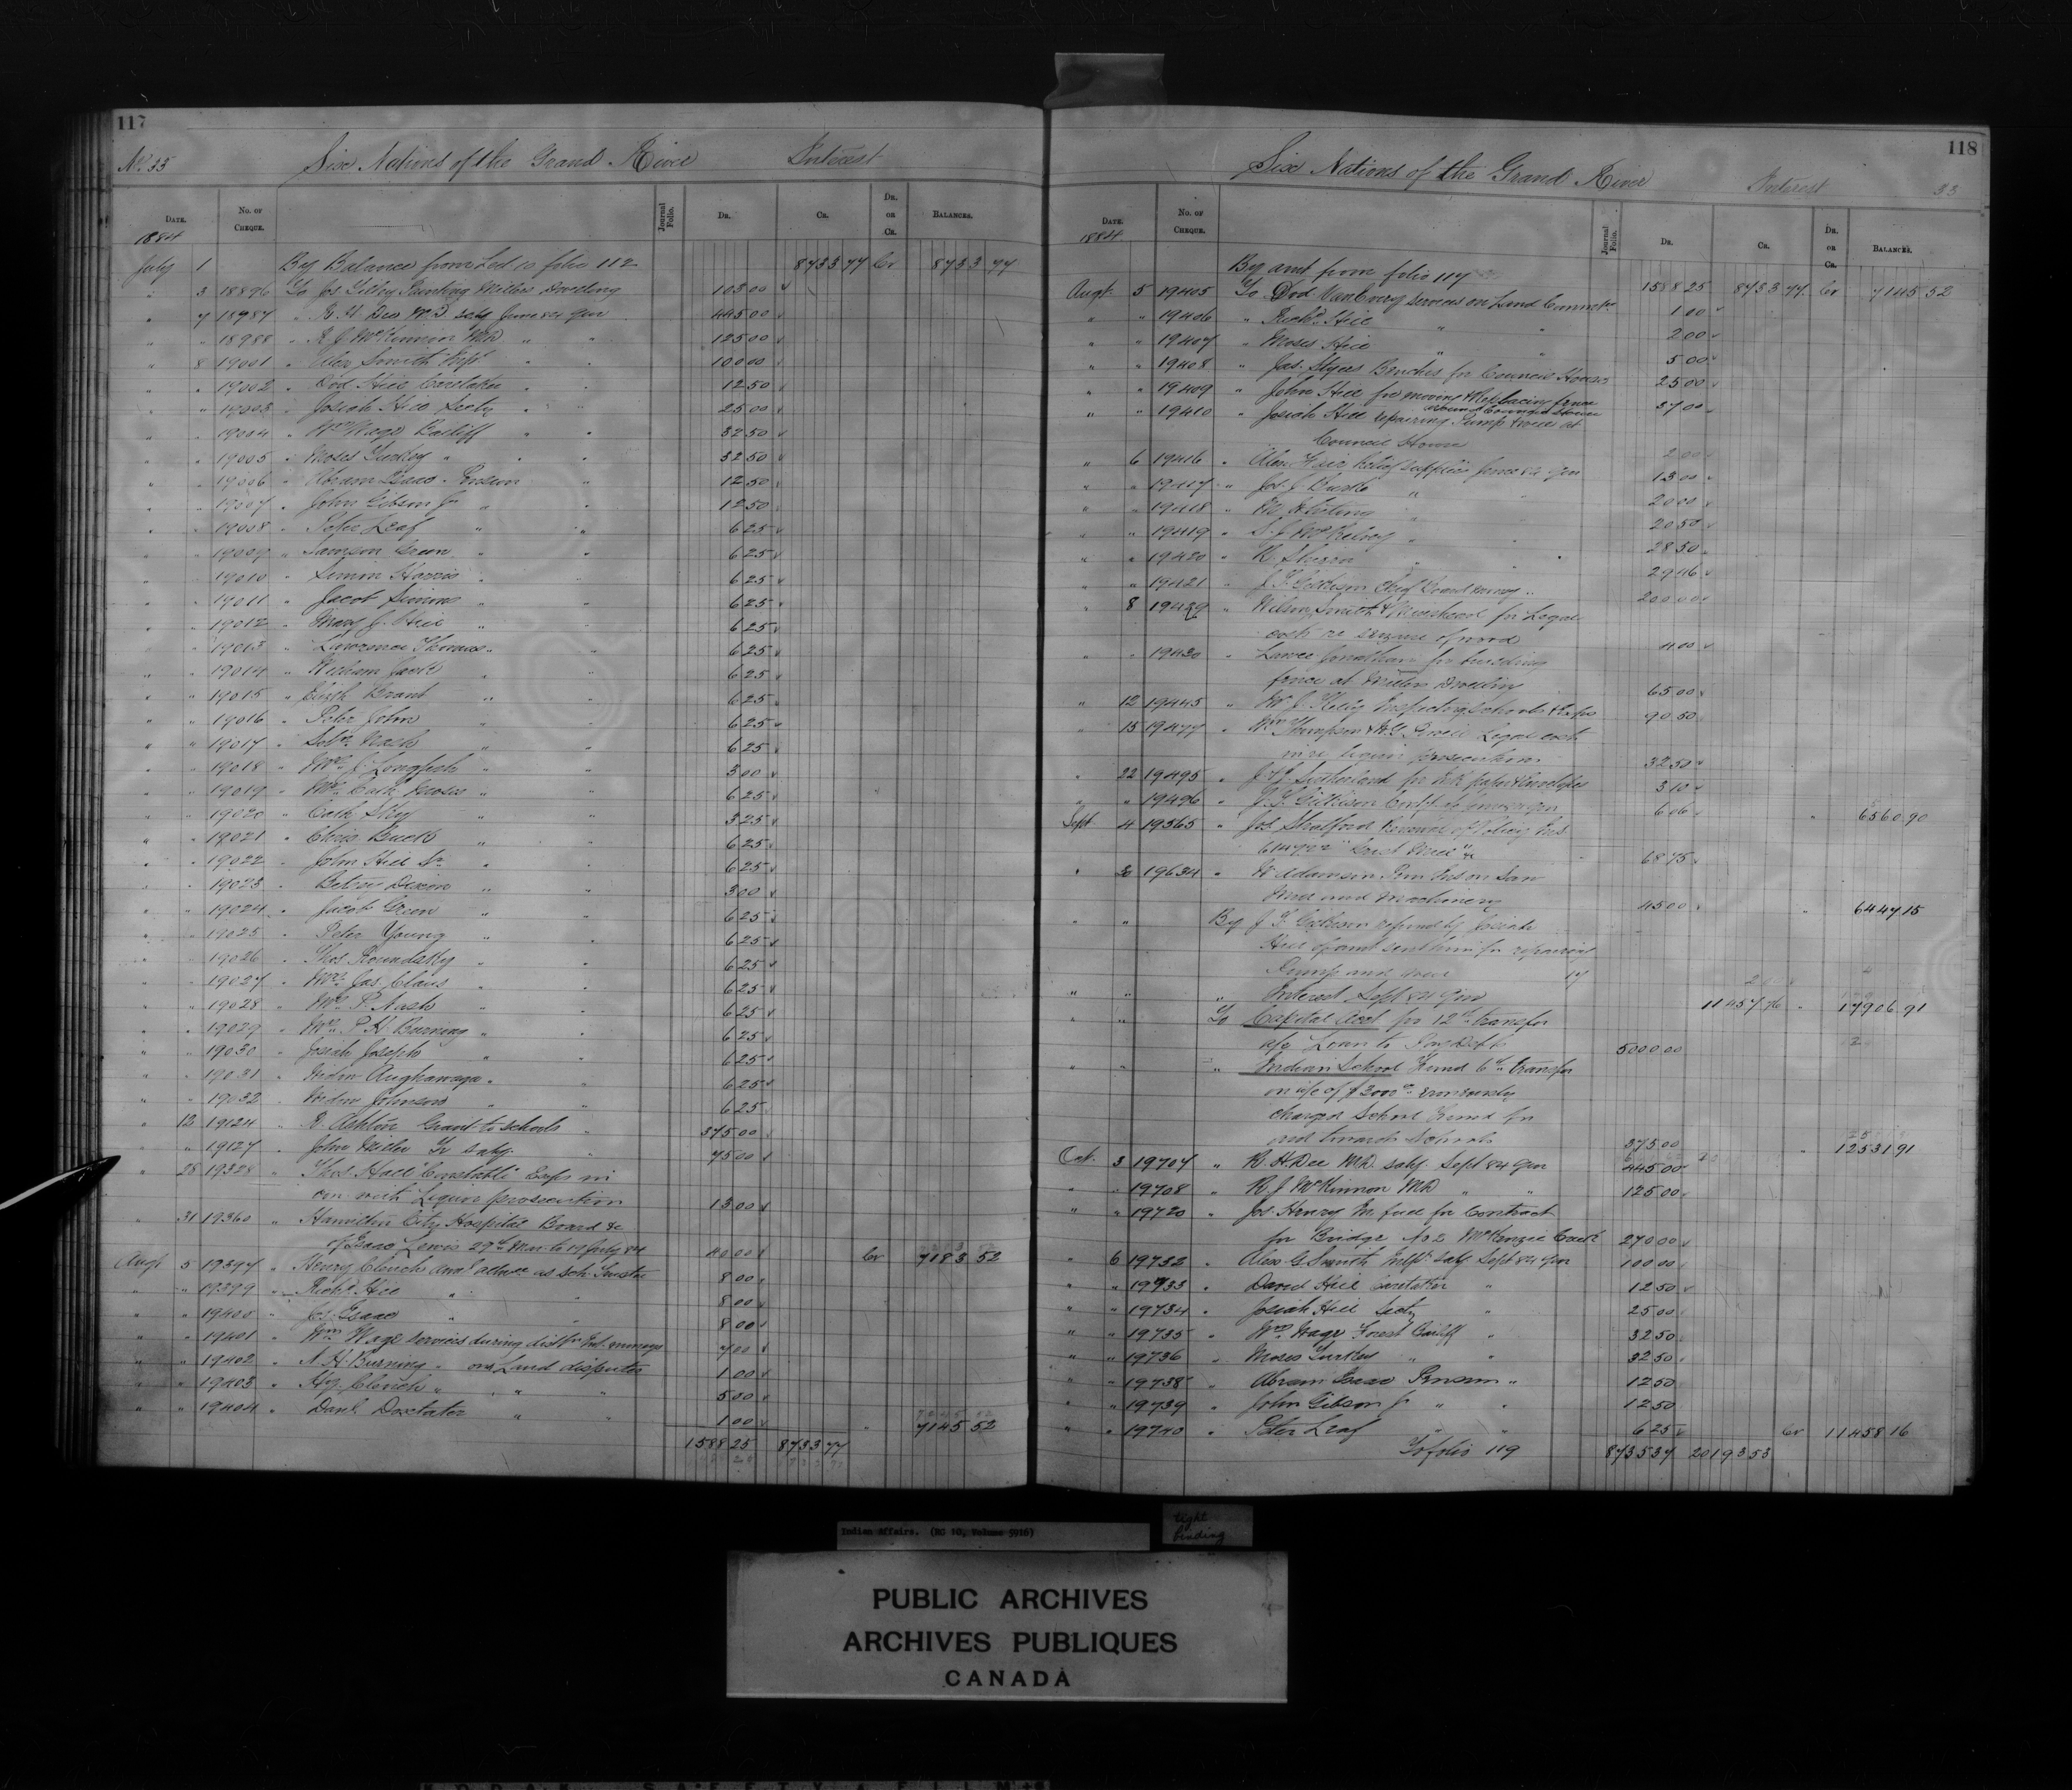 117
No. 33 Six Nations of the Grand River Interest
DATE. No. OF CHEQUE. Journal Folio. DR. CR. DR. OR CR. BALANCES.
1884
July 1 By Balance from Led 10 folio 112 8733 77 Cr 8733 77
" 3 18896 To Jos Painting Millers Dwelling 103 00
" 7 18987 " R. H. Dee MD saly June 84 qur 445 00
" " 18988 " R J McKinnon MD " " 125 00
" 8 19001 " Alex Smith " " 100 00
" " 19002 " Dvd Hill Caretaker " " 12 50
" " 19003 " Josiah Hill Secty " " 25 00
" " 19004 " Wm Wage Bailiff " " 32 50
" " 19005 " Moses Turkey " " " 32 50
" " 19006 " Abram Isaac Pension " 12 50
" " 19007 " John Gibson Jr " " 12 50
" " 19008 " Peter Leaf " " 6 25
" " 19009 " Samson Green " " 6 25
" " 19010 " Simon Harris " " 6 25
" " 19011 " Jacob Simons " " 6 25
" " 19012 " Mary J. Hill " " 6 25
" " 19013 " Lawrence Thomas " " 6 25
" " 19014 " William " " 6 25
" " 19015 " Brant " " 6 25
" " 19016 " Peter John " " 6 25
" " 19017 " Nash " " 6 25
" " 19018 " Mrs J. Longfish " " 3 00
" " 19019 " Mrs Cath Moses " " 6 25
" " 19020 " Cath Sky " " 3 25
" " 19021 " Chris Buck " " 6 25
" " 19022 " John Hill Sr " " 6 25
" " 19023 " Betsy Dixon " " 3 00
" " 19024 " Jacob Green " " 6 25
" " 19025 " Peter Young " " 6 25
" " 19026 " Thos Roundsky " " 6 25
" " 19027 " Mrs Jas Claus " " 6 25
" " 19028 " Mrs P. Nash " " 6 25
" " 19029 " Mrs P H Burning " " 6 25
" " 19030 " Josiah Joseph " " 6 25
" " 19031 " Widow " " 6 25
" " 19032 " Widow Johnson " " 6 25
" 12 19124 " R. Ashton Grant to schools " 375 00
" " 19127 " John Miller Jr saly " 75 00
" 25 19328 " Thos Hall Constable Exps in
con with Liquor prosecution 13 00
" 31 19360 " Hamilton City Hospital Board &c
of Isaac Lewis 29th Mar. to 17 July 84 40 00 Cr 7183 52
Augt 5 19397 " Henry Clench as Sch. Trustee 8 00
" " 19399 " Richd Hill " " 8 00
" " 19400 " Isaac " " 8 00
" " 19401 " Wm Wage services during 7 00
" " 19402 " N. H. Burning " on Land disputes 1 00
" " 19403 " Hy. Clench " " " 5 00
" " 19404 " Danl. Doxtater " " 1 00 " 7145 52
1588 25 8733 77
118
Six Nations of the Grand River Interest 33
DATE. No. OF CHEQUE. Journal Folio. DR. CR. DR. OR CR. BALANCES.
1884
By amt from folio 117 1588 25 8733 77 Cr 7145 52
Augt. 5 19405 To Dvd VanEvery services on Land 1 00
" " 19406 " Richd Hill " " 2 00
" " 19407 " Moses Hill " " 5 00
" " 19408 " Jas. Styres Benches for Council House 25 00
" " 19409 " John Hill for moving & Replacing fence
around Council House 37 00
" " 19410 " Josiah Hill repairing Pump & well at
Council House 2 00
" 6 19416 " Alex. Relief supplies June 84 qur 13 00
" " 19417 " Jos. J. " " 20 00
" " 19418 " " " 20 50
" " 19419 " McKelvey " " 28 50
" " 19420 " R. " " 29 46
" " 19421 " J. T. Gilkison 200 00
" 8 19429 " Wilson, Smith & Muirhead for Legal
costs re seizure of wood 4 00
" " 19430 " Jonathan for building
fence at Millers Dwelling 65 00
" 12 19445 " Inspecting schools 90 50
" 15 19477 " Wm Thompson Legal costs
in re liquor prosecution 32 50
" 22 19495 " Sutherland for paper & Envelopes 3 10
" " 19496 " J. T. Gilkison 6 06 " 6560 90
Sept 4 19565 " Jos Stratford Renewal of Policy Ins
Grist Mill &c 68 75
" 30 19634 " Adamson Ins on Saw
Mill and Machinery 45 00 " 6447 15
" " By J. T. Gilkison refund by Josiah
Hill of amt sent him for repairing
Pump and well 2
" " " Interest Sept 84 Qur 11457 76 " 17906 91
" " To Capital Acct for 12th transfer
Loan to 5000 00
" " " Indian School Fund 6th transfer
on a/c of $3000
charged School Fund for
aid towards Schools 375 00 " 12531 91
Oct. 3 19707 " R. H. Dee MD. saly. Sept 84 qur 445 00
" " 19708 " R J McKinnon MD " " 125 00
" " 19720 " Jos. Henry for Contract
for Bridge No 2 McKenzie Creek 270 00
" 6 19732 " Alex G Smith saly Sept 84 qur 100 00
" " 19733 " David Hill Caretaker " 12 50
" " 19734 " Josiah Hill Secty " 25 00
" " 19735 " Wm Wage Forest Bailiff " 32 50
" " 19736 " Moses Turkey " " 32 50
" " 19738 " Abram Isaac Pension " 12 50
" " 19739 " John Gibson Jr " " 12 50
" " 19740 " Peter Leaf " " 6 25 Cr 11458 16
To folio 119 8735 37 20193 53
Indian Affairs. (RG 10, Volume 5916)
tight
binding
PUBLIC ARCHIVES
ARCHIVES PUBLIQUES
CANADA